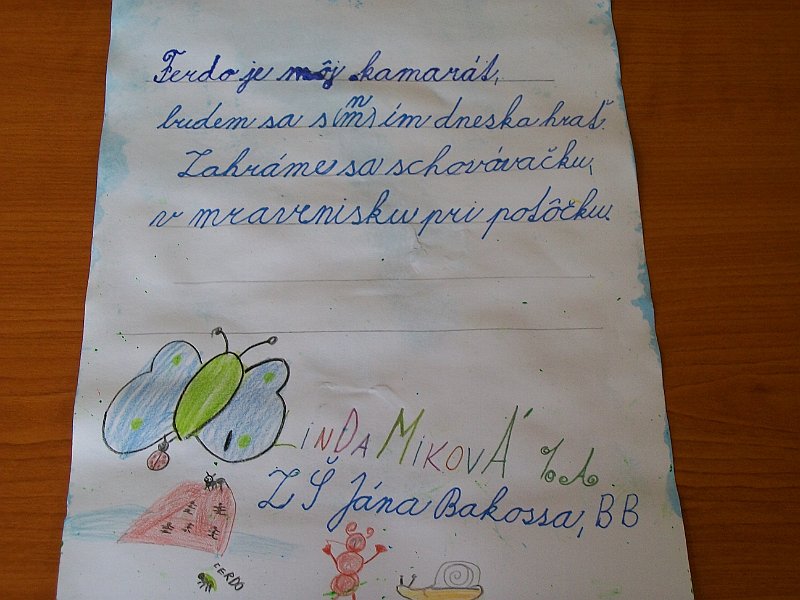 Ferdo je môj kamarát,
budem sa s(n)ím dneska hrať.
Zahráme sa schovávačku,
v mravenisku pri potôčku.
LINDA MIKOVÁ
ZŠ Jána Bakossa, BB
FERDO